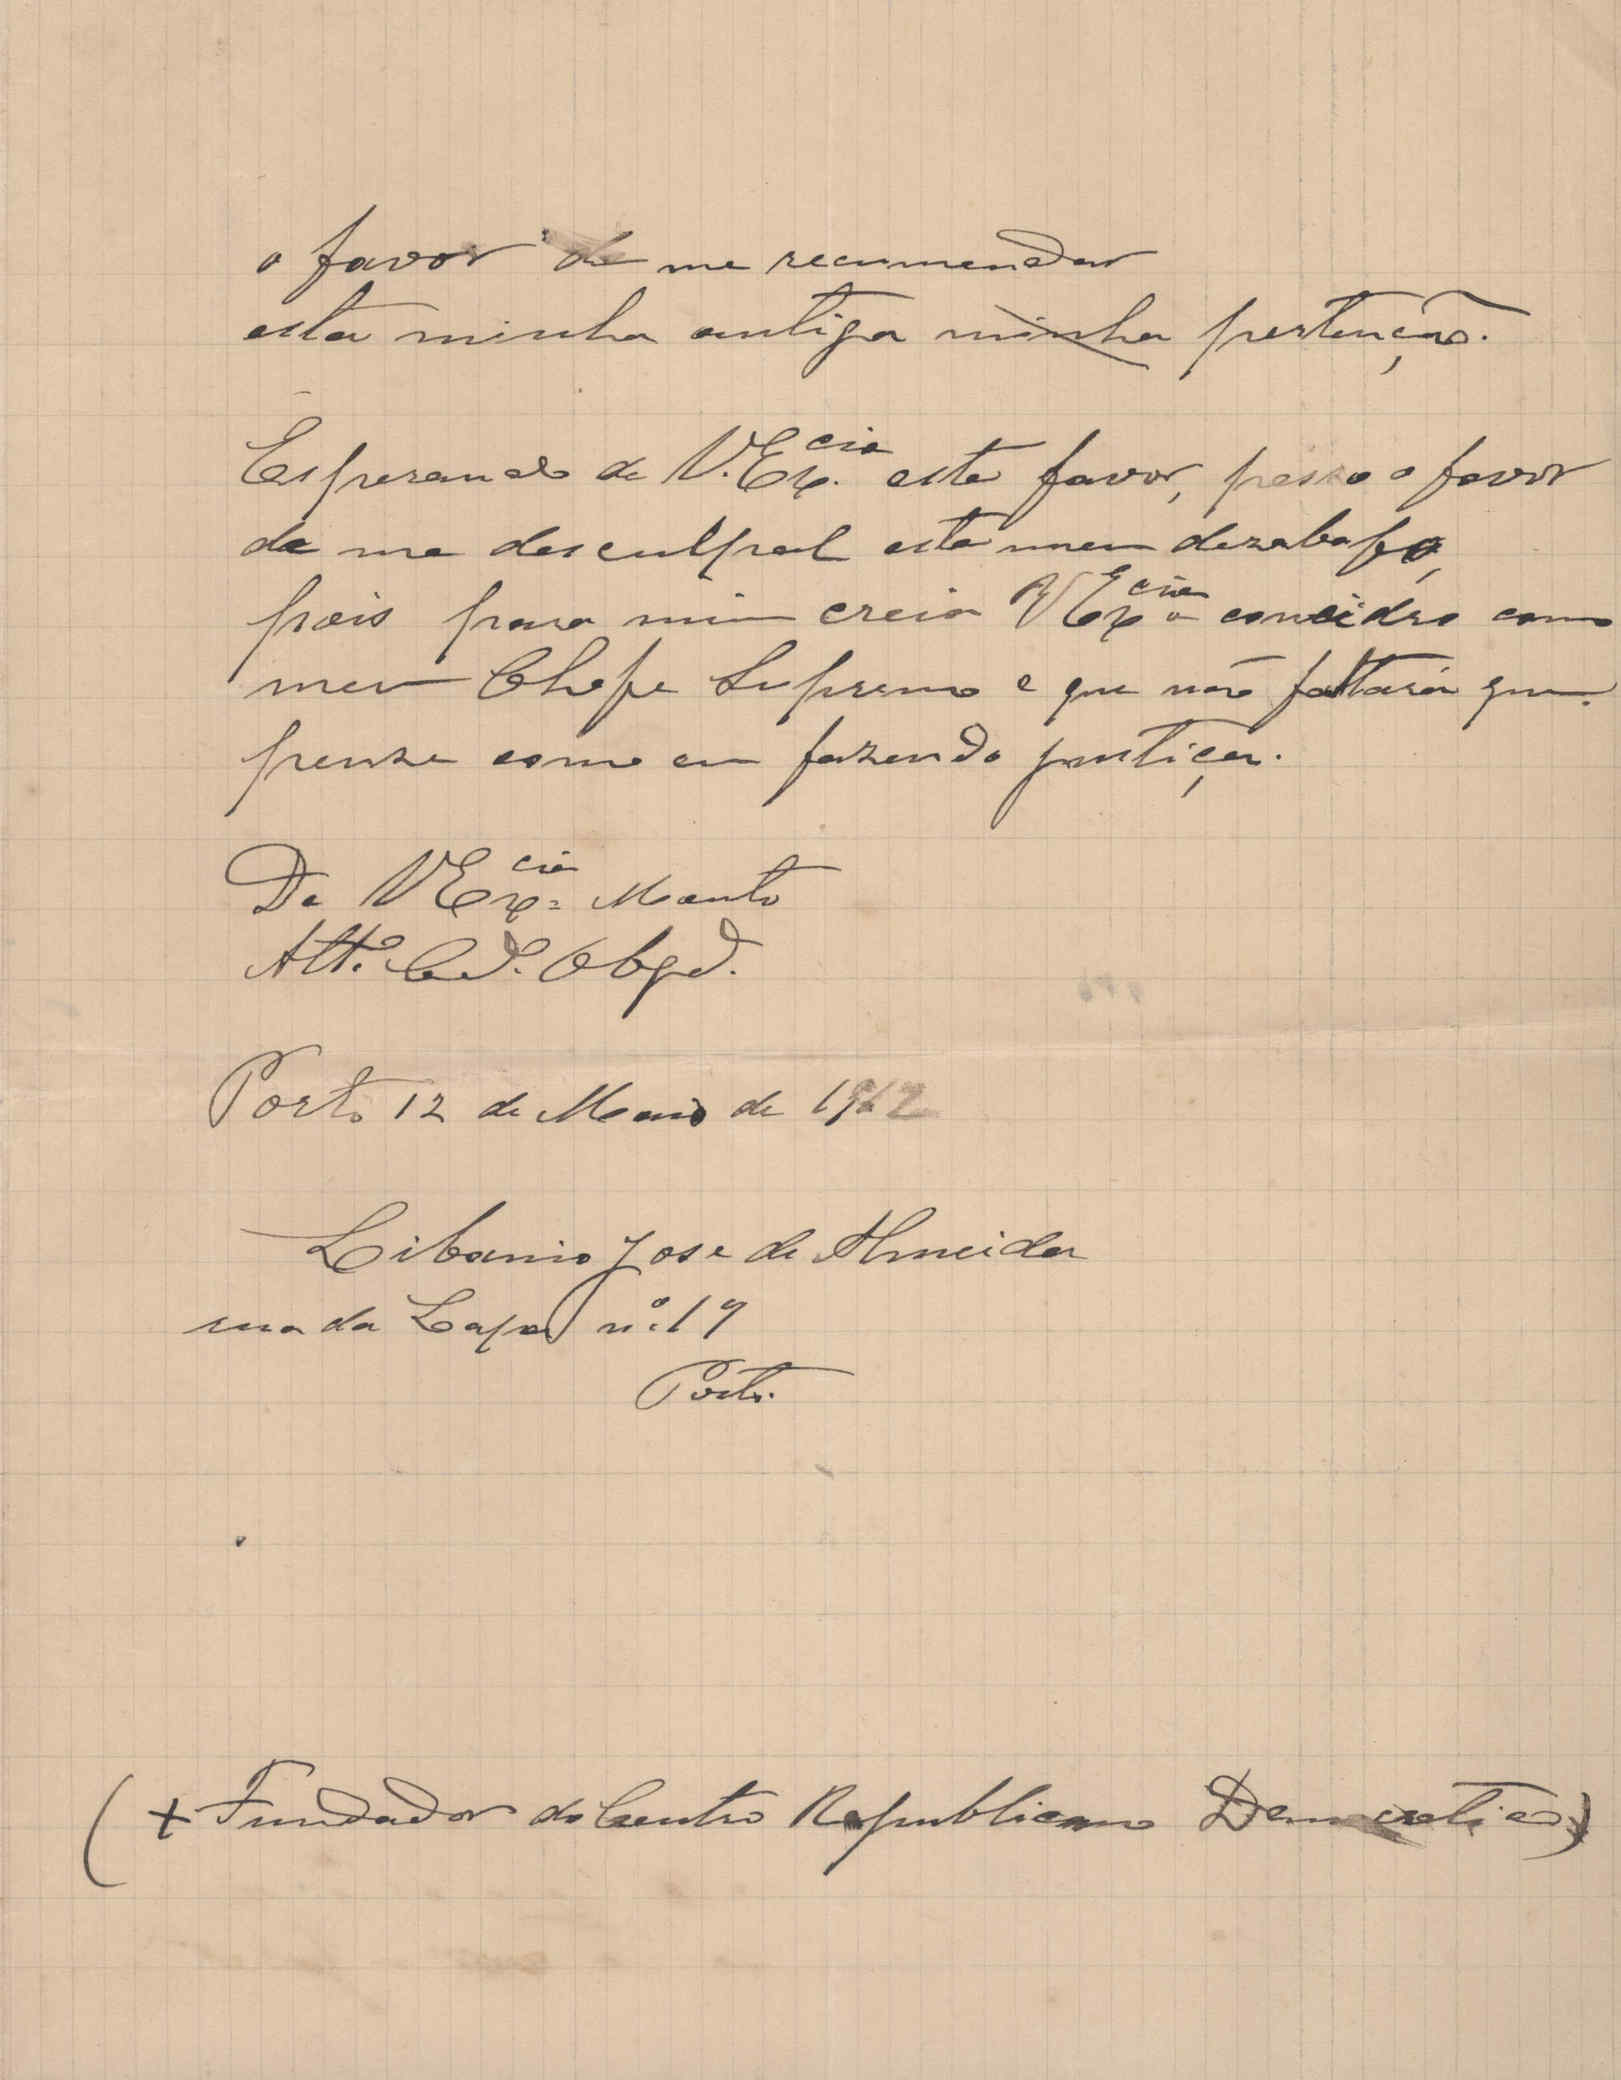 o favor de me recumendar
esta minha antiga minha pertenção.
Esperando de V. Ex.cia este favor, pesso o favor
de me desculpal este meu dezabafo,
pois para mim creia V Ex.cia o concidro como
meu Chefe Supremo e que não faltará que
pense como eu fazendo justiça.
De V Ex.cia Muito
Att.º C.d. Obgd.
Porto 12 de Maio de 1912
Libanio Jose de Almeida
rua da Lapa n.º 19
Porto.
(+ Fundador do Centro Republicano Democratico)